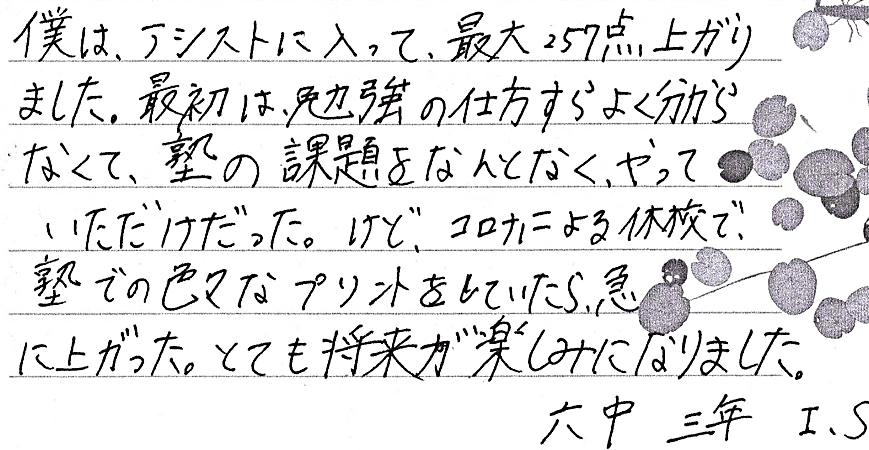 僕は、アシストに入って、最大257点上がり
ました。最初は、勉強の仕方すらよく分から
なくて、塾の課題をなんとなく、やって
いただけだった。けど、コロナによる休校で、
塾での色々なプリントをしていたら、急
に上がった。とても将来が楽しみになりました。
六中 三年 I.S